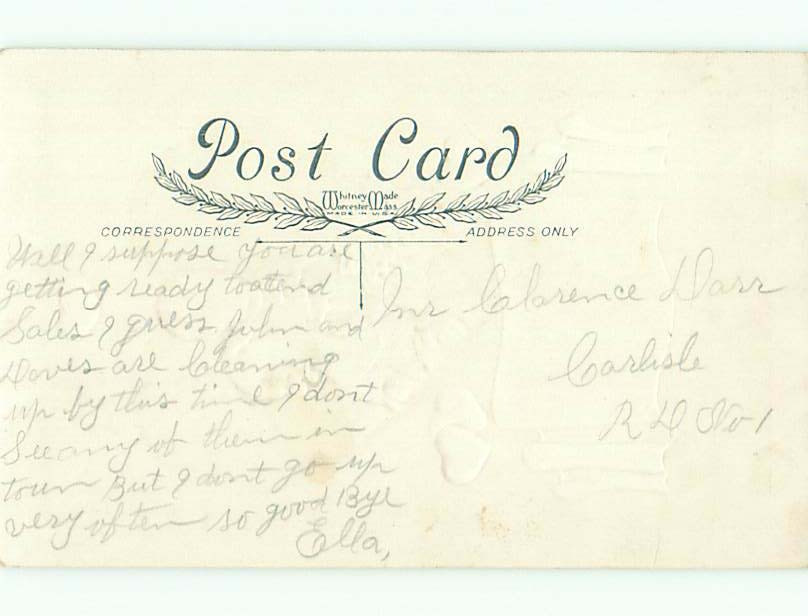 Post Card
Whitney Made
Worcester Mass
MADE IN U.S.A.
CORRESPONDENCE
ADDRESS ONLY
Well I suppose you are
getting ready toattend
Sales I guess John and
Daves are Cleaning
up by this time I dont
See any of them in
town But I dont go up
very often so good Bye
Ella,
Mr Clarence Darr
Carlisle
R D No 1